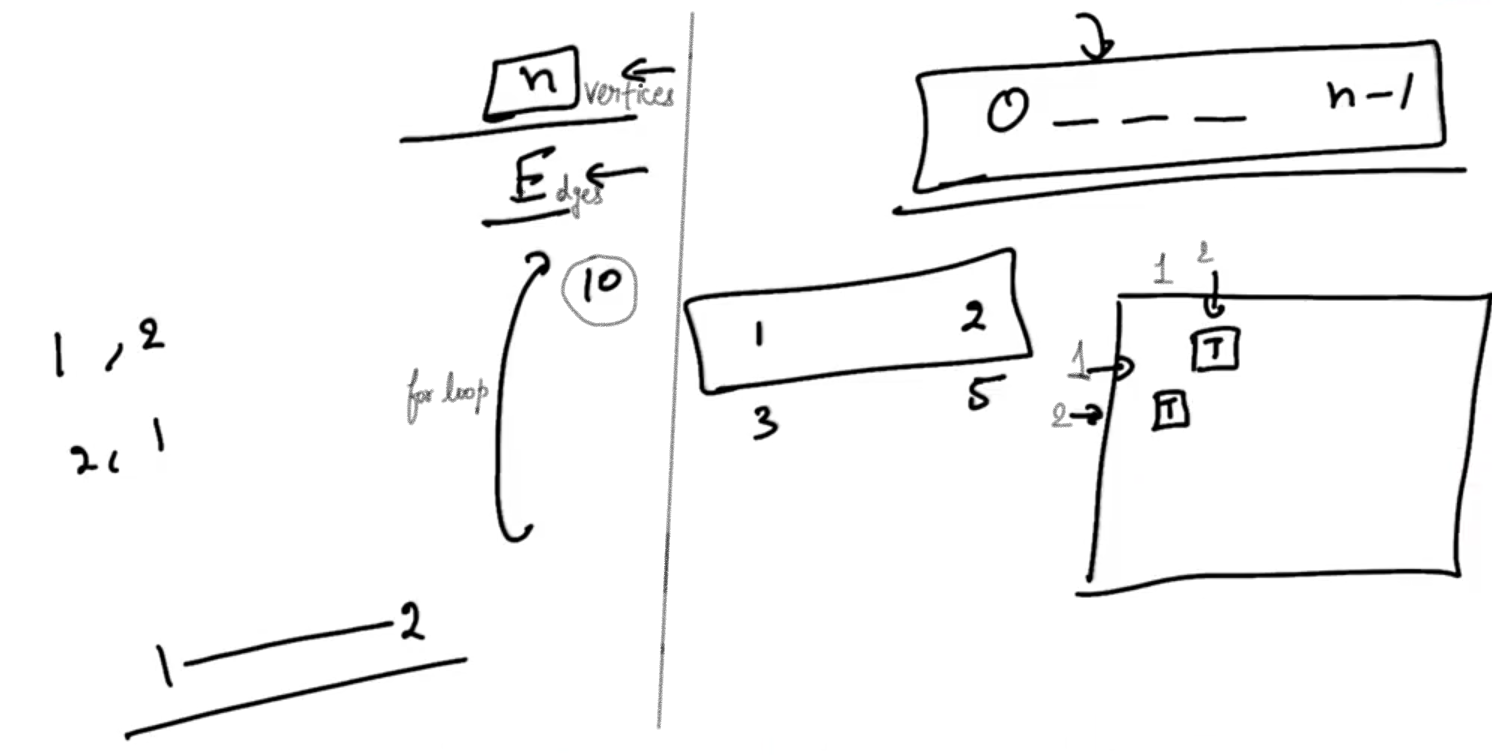 n vertices
Edges
10
for loop
1 , 2
2, 1
1 2
0 _ _ _ n-1
1 2
3 5
1 2
1 T
2 T